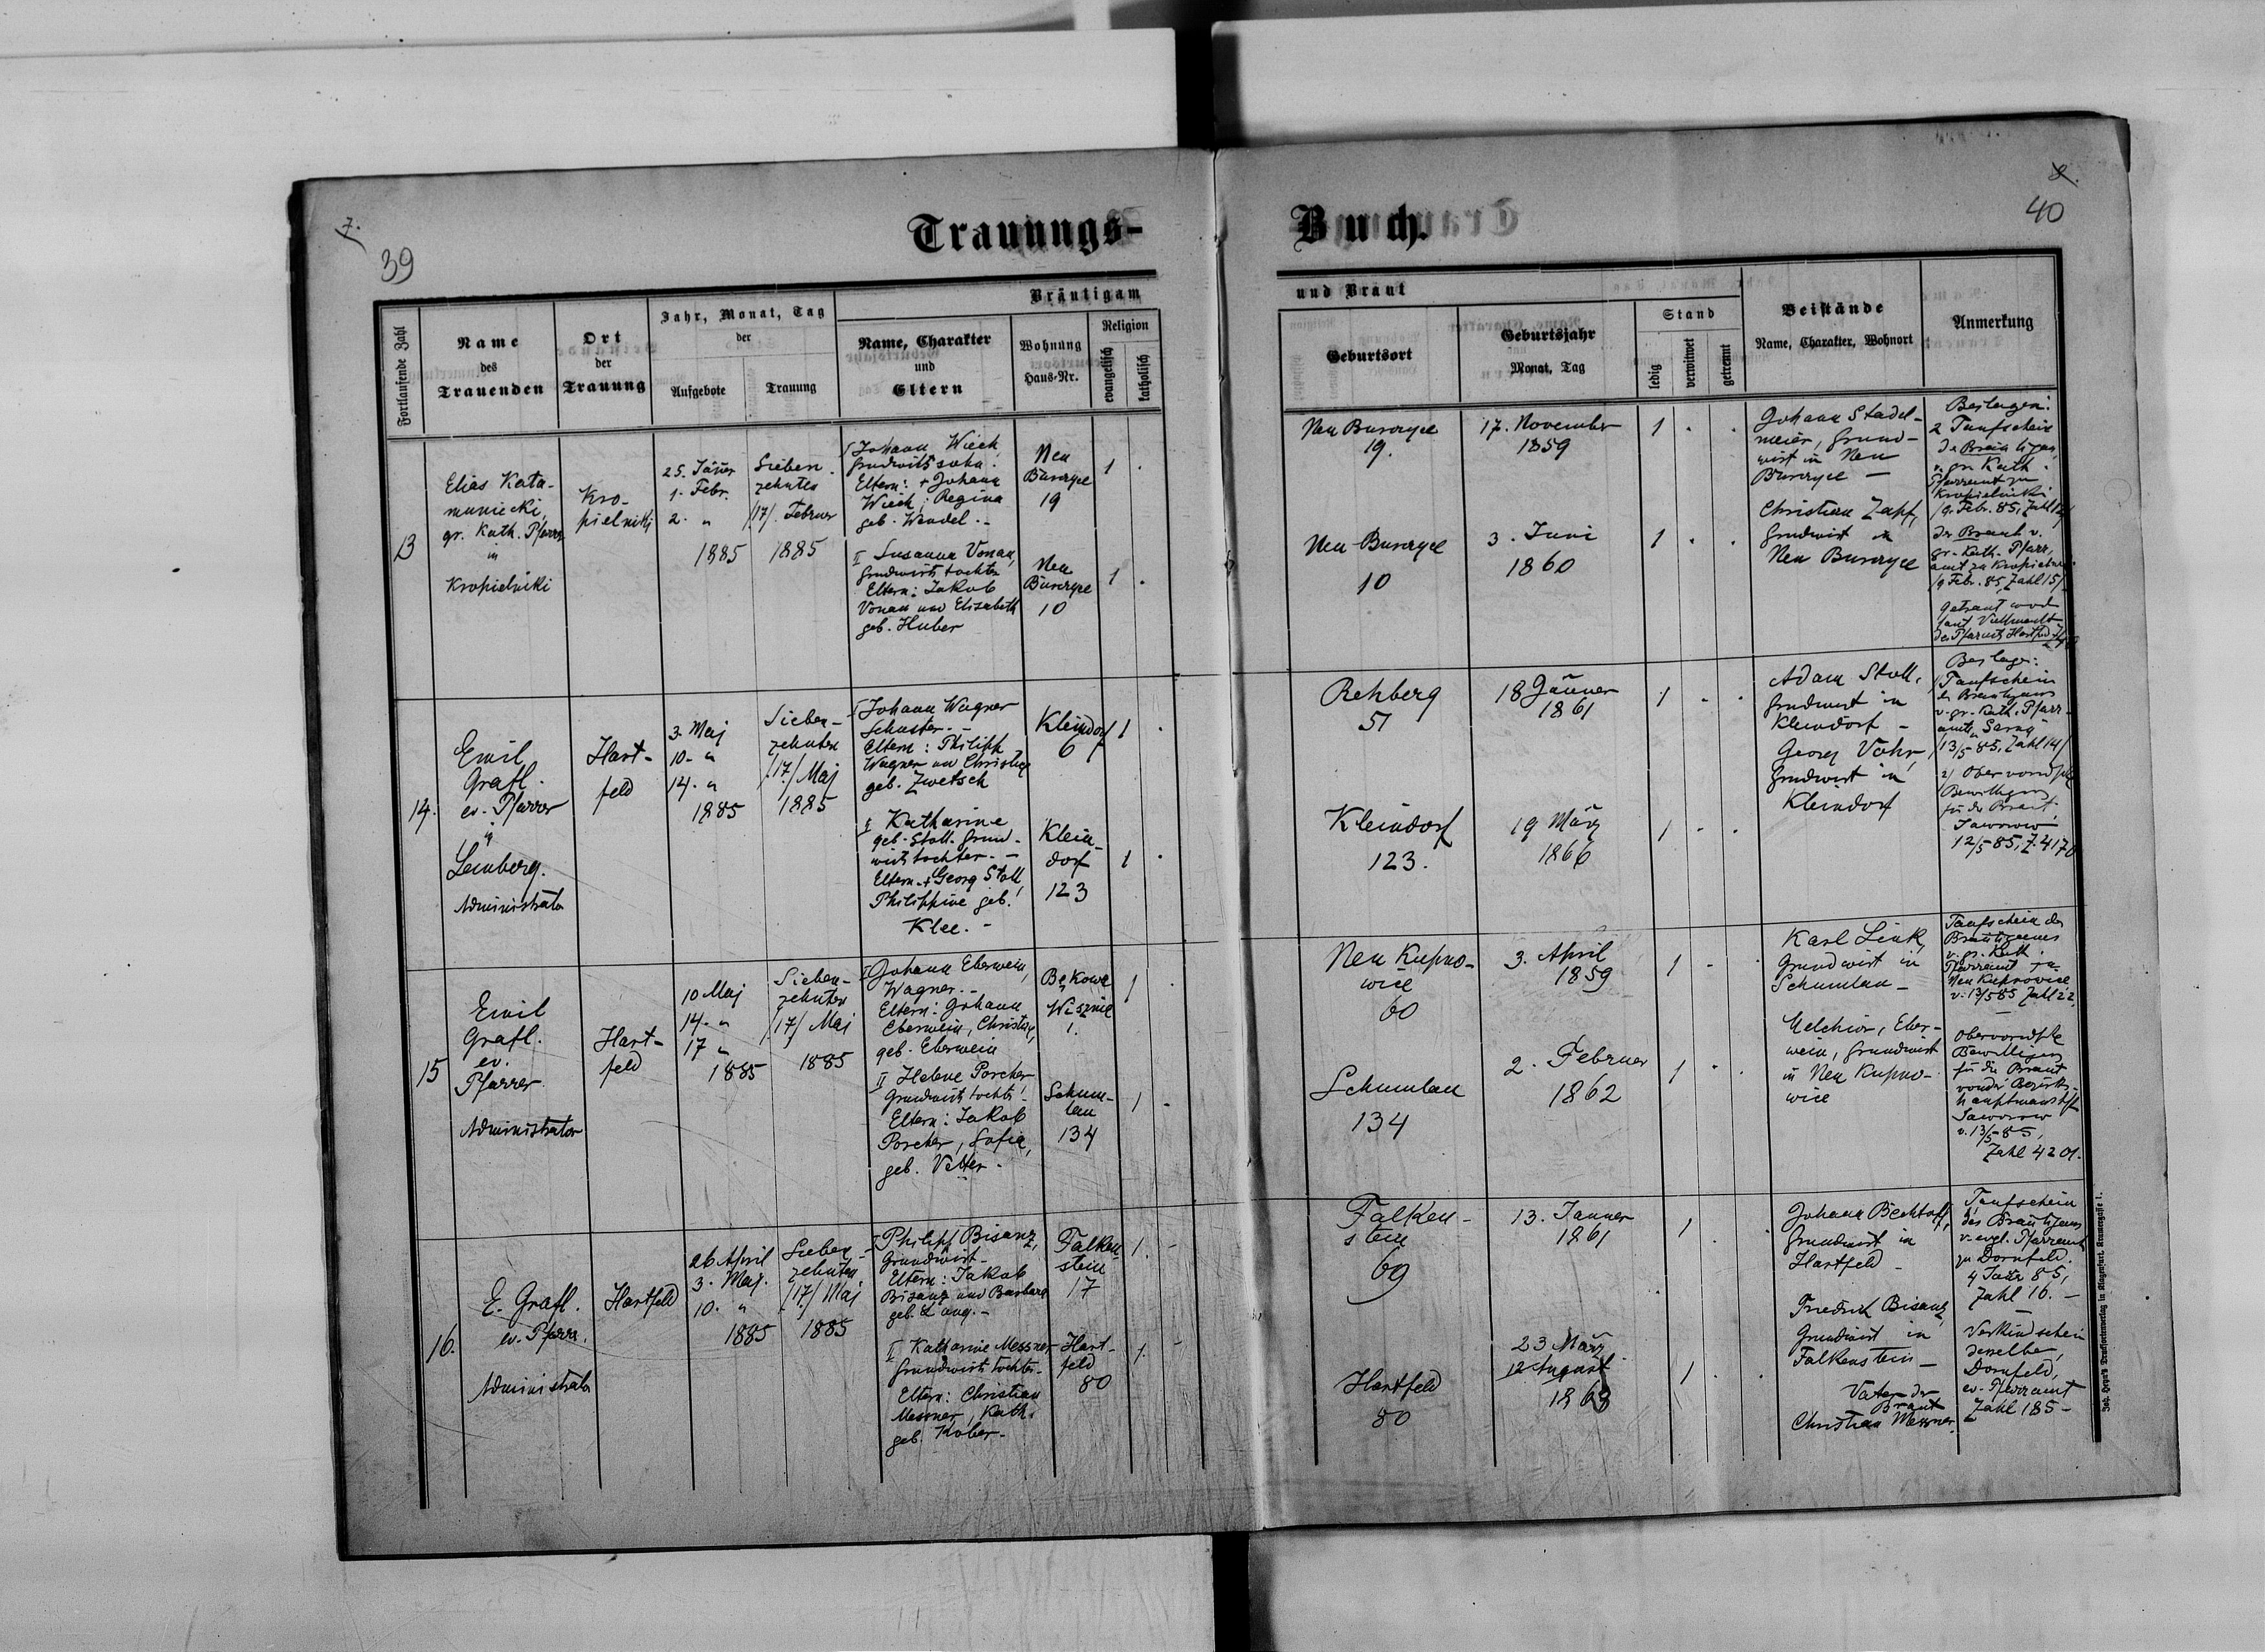 7.
39
Trauungs-
Fortlaufende Zahl
Name
des
Trauenden
Ort
der
Trauung
Jahr, Monat, Tag
der
Aufgebote
Trauung
Bräutigam
Name, Charakter
und
Eltern
Wohnung
Haus-Nr.
Religion
evangelisch
katholisch
13
Elias Kata-
muniecki,
gr. Kath. Pfarrer
in
Kropielniki
Kro-
pielniki
25. Jäner
1. Febr.
2. "
1885
Sieben-
zehntes
/17/. Februar
1885
I Johann Wiech,
Grundwirtssohn.
Eltern: + Johann
Wiech; Regina
geb. Wendel. -
Neu
Bunergel
19
1 .
II Susanna Vonau,
Grundwirts tochter
Eltern: Jakob
Vonau und Elisabeth
geb. Huber
Neu
Bunergel
10
1 .
14.
Emil
Grafl.
ev. Pfarrer
in
Lemberg.
Administrator
Hart-
feld
3. Maj
10. "
14. "
1885
Sieben-
zehnten
/17./ Maj
1885
I Johann Wagner
Schuster. -
Eltern: Philipp
Wagner und Christine
geb. Zwetsch
Kleindorf
6
1 .
II Katharine
geb. Stoll. Grund-
wirtstochter. -
Eltern + Georg Stoll,
Philippine geb.
Klee. -
Klein-
dorf
123
1 .
15
Emil
Grafl.
ev.
Pfarrer
Administrator
Hart-
feld
10 Maj
14. "
17 "
1885
Sieben-
zehnter
/17/ Maj
1885
I Johann Eberwein,
Wagner. -
Eltern: Johann
Eberwein, Christine,
geb. Eberwein
Bekowe
Wisznie
1.
1 .
II Helene Porcher
Grundwirts tochter -
Eltern: Jakob
Porcher, Sofie,
geb. Vetter -
Schum-
lau
134
1 -
16.
E. Grafl.
ev. Pfarr.
Administrator
Hartfeld
26. April
3. Maj.
10. "
1885
Sieben-
zehnten
/17./ Maj
1885
I Philipp Bisanz,
Grundwirt -
Eltern: Jakob
Bisanz und Barbara
geb. Lang. -
Falken
stein
17
1. -
II Katharine Messner
Grundwirts tochter -
Eltern: Christian
Messner, Kath.
geb. Kober -
Hart-
feld
80
1. -
Buch.
8.
40
und Braut
Geburtsort
Geburtsjahr
Monat, Tag
Stand
ledig
verwitwet
getrennt
Beistände
Name, Charakter, Wohnort
Anmerkung
Neu Bunergel
19.
17. November
1859
1 . .
Johann Stadel-
meier, Grund-
wirt in Neu
Bunergel -
Beilagen:
2 Taufschein
de Bräutigam,
v. gr. Kath.
Pfarramt zu
Kropielniki
/9. Febr. 85, Zahl 14/
Neu-Bunergel
10
3. Juni
1860
1 . .
Christian Zapf,
Grundwirt in
Neu Bunergel
der Braut v.
gr. Kath. Pfarr,
amt zu Kropielniki
/9 Febr. 85, Zahl 15/
Rehberg
51
18 Jänner
1861
1 . .
Adam Stoll,
Grundwirt in
Kleindorf -
Beilage:
Taufschein
des Bräutigams
v. gr. Kath. Pfarr-
amte Sarny
/13/5 85, Zahl 14/
Kleindorf
123.
19 März
1866
1 . .
Georg Vohr,
Grundwirt in
Kleindorf
Jaworow
12/5 85, Z. 4170
Neu Kupno-
wice
60
3. April
1859
1 . .
Karl Link,
Grundwirt in
Schumlau -
Taufschein des
Bräutigams
v. gr. Kath
Pfarramt zu
Neu Kupnowice
v. 13/5 85 Zahl 22
Schumlau
134
2. Februar
1862
1 . .
Melchior, Eber-
wein, Grundwirt
in Neu Kupno-
wice
Bewilligung
für die Braut
von der Bezirks-
hauptmannschft
Jaworow
v. 13/5 85,
Zahl 4201.
Falken-
stein
69
13. Janner
1861
1 . .
Johann Bechtoff,
Grundwirt in
Hartfeld -
Taufschein
des Bräutigams
v. evgl. Pfarramt
zu Dornfeld.
4 Jänr 85,
Zahl 16. -
Hartfeld
80
23 März
12 August
1863
1 . .
Friedrich Bisanz,
Grundwirt in
Falkenstein -
Vater der
Braut
Christian Messner.
Verkündschein
desselben,
Dornfeld,
ev. Pfarramt
Zahl 185 -